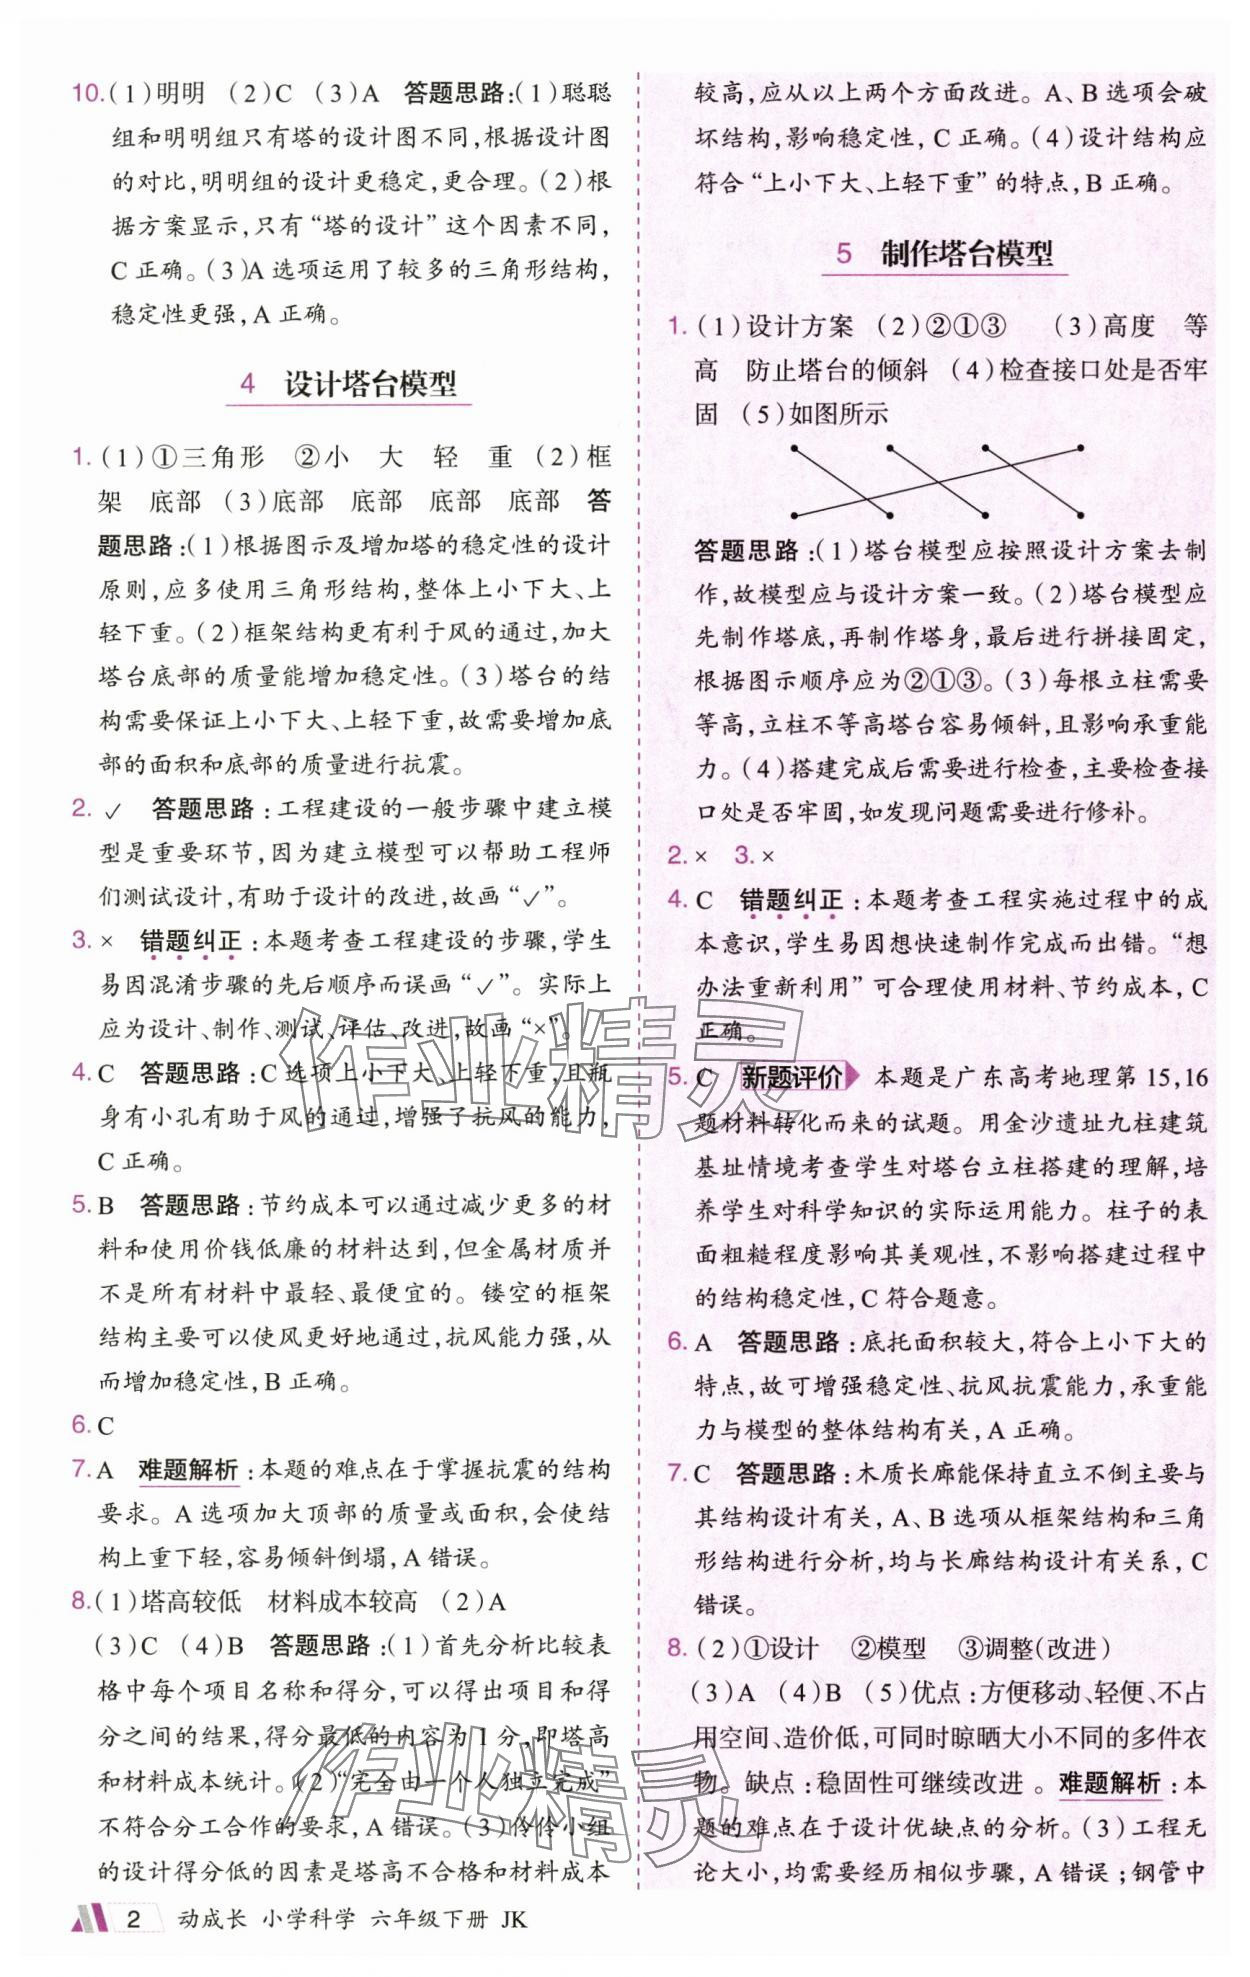 10.(1)明明 (2)C (3)A 答题思路:(1)聪聪
组和明明组只有塔的设计图不同,根据设计图
的对比,明明组的设计更稳定,更合理。(2)根
据方案显示,只有“塔的设计”这个因素不同,
C正确。(3)A选项运用了较多的三角形结构,
稳定性更强,A正确。
4 设计塔台模型
1.(1)①三角形 ②小 大 轻 重 (2)框
架 底部 (3)底部 底部 底部 底部 答
题思路:(1)根据图示及增加塔的稳定性的设计
原则,应多使用三角形结构,整体上小下大、上
轻下重。(2)框架结构更有利于风的通过,加大
塔台底部的质量能增加稳定性。(3)塔台的结
构需要保证上小下大、上轻下重,故需要增加底
部的面积和底部的质量进行抗震。
2.✓ 答题思路:工程建设的一般步骤中建立模
型是重要环节,因为建立模型可以帮助工程师
们测试设计,有助于设计的改进,故画“✓”。
3.× 错题纠正:本题考查工程建设的步骤,学生
易因混淆步骤的先后顺序而误画“✓”。实际上
应为设计、制作、测试、评估、改进,故画“×”。
4.C 答题思路:C选项上小下大、上轻下重,且瓶
身有小孔有助于风的通过,增强了抗风的能力,
C正确。
5.B 答题思路:节约成本可以通过减少更多的材
料和使用价钱低廉的材料达到,但金属材质并
不是所有材料中最轻、最便宜的。镂空的框架
结构主要可以使风更好地通过,抗风能力强,从
而增加稳定性,B正确。
6.C
7.A 难题解析:本题的难点在于掌握抗震的结构
要求。A选项加大顶部的质量或面积,会使结
构上重下轻,容易倾斜倒塌,A错误。
8.(1)塔高较低 材料成本较高 (2)A
(3)C (4)B 答题思路:(1)首先分析比较表
格中每个项目名称和得分,可以得出项目和得
分之间的结果,得分最低的内容为1分,即塔高
和材料成本统计。(2)“完全由一个人独立完成”
不符合分工合作的要求,A错误。(3)伶伶小组
的设计得分低的因素是塔高不合格和材料成本
较高,应从以上两个方面改进。A、B选项会破
坏结构,影响稳定性,C正确。(4)设计结构应
符合“上小下大、上轻下重”的特点,B正确。
5 制作塔台模型
1.(1)设计方案 (2)②①③ (3)高度 等
高 防止塔台的倾斜 (4)检查接口处是否牢
固 (5)如图所示
答题思路:(1)塔台模型应按照设计方案去制
作,故模型应与设计方案一致。(2)塔台模型应
先制作塔底,再制作塔身,最后进行拼接固定,
根据图示顺序应为②①③。(3)每根立柱需要
等高,立柱不等高塔台容易倾斜,且影响承重能
力。(4)搭建完成后需要进行检查,主要检查接
口处是否牢固,如发现问题需要进行修补。
2.× 3.×
4.C 错题纠正:本题考查工程实施过程中的成
本意识,学生易因想快速制作完成而出错。“想
办法重新利用”可合理使用材料、节约成本,C
正确。
5.C 新题评价 本题是广东高考地理第15,16
题材料转化而来的试题。用金沙遗址九柱建筑
基址情境考查学生对塔台立柱搭建的理解,培
养学生对科学知识的实际运用能力。柱子的表
面粗糙程度影响其美观性,不影响搭建过程中
的结构稳定性,C符合题意。
6.A 答题思路:底托面积较大,符合上小下大的
特点,故可增强稳定性、抗风抗震能力,承重能
力与模型的整体结构有关,A正确。
7.C 答题思路:木质长廊能保持直立不倒主要与
其结构设计有关,A、B选项从框架结构和三角
形结构进行分析,均与长廊结构设计有关系,C
错误。
8.(2)①设计 ②模型 ③调整(改进)
(3)A (4)B (5)优点:方便移动、轻便、不占
用空间、造价低,可同时晾晒大小不同的多件衣
物。缺点:稳固性可继续改进。难题解析:本
题的难点在于设计优缺点的分析。(3)工程无
论大小,均需要经历相似步骤,A错误;钢管中
作业精灵
作业精灵
2 动成长 小学科学 六年级下册 JK